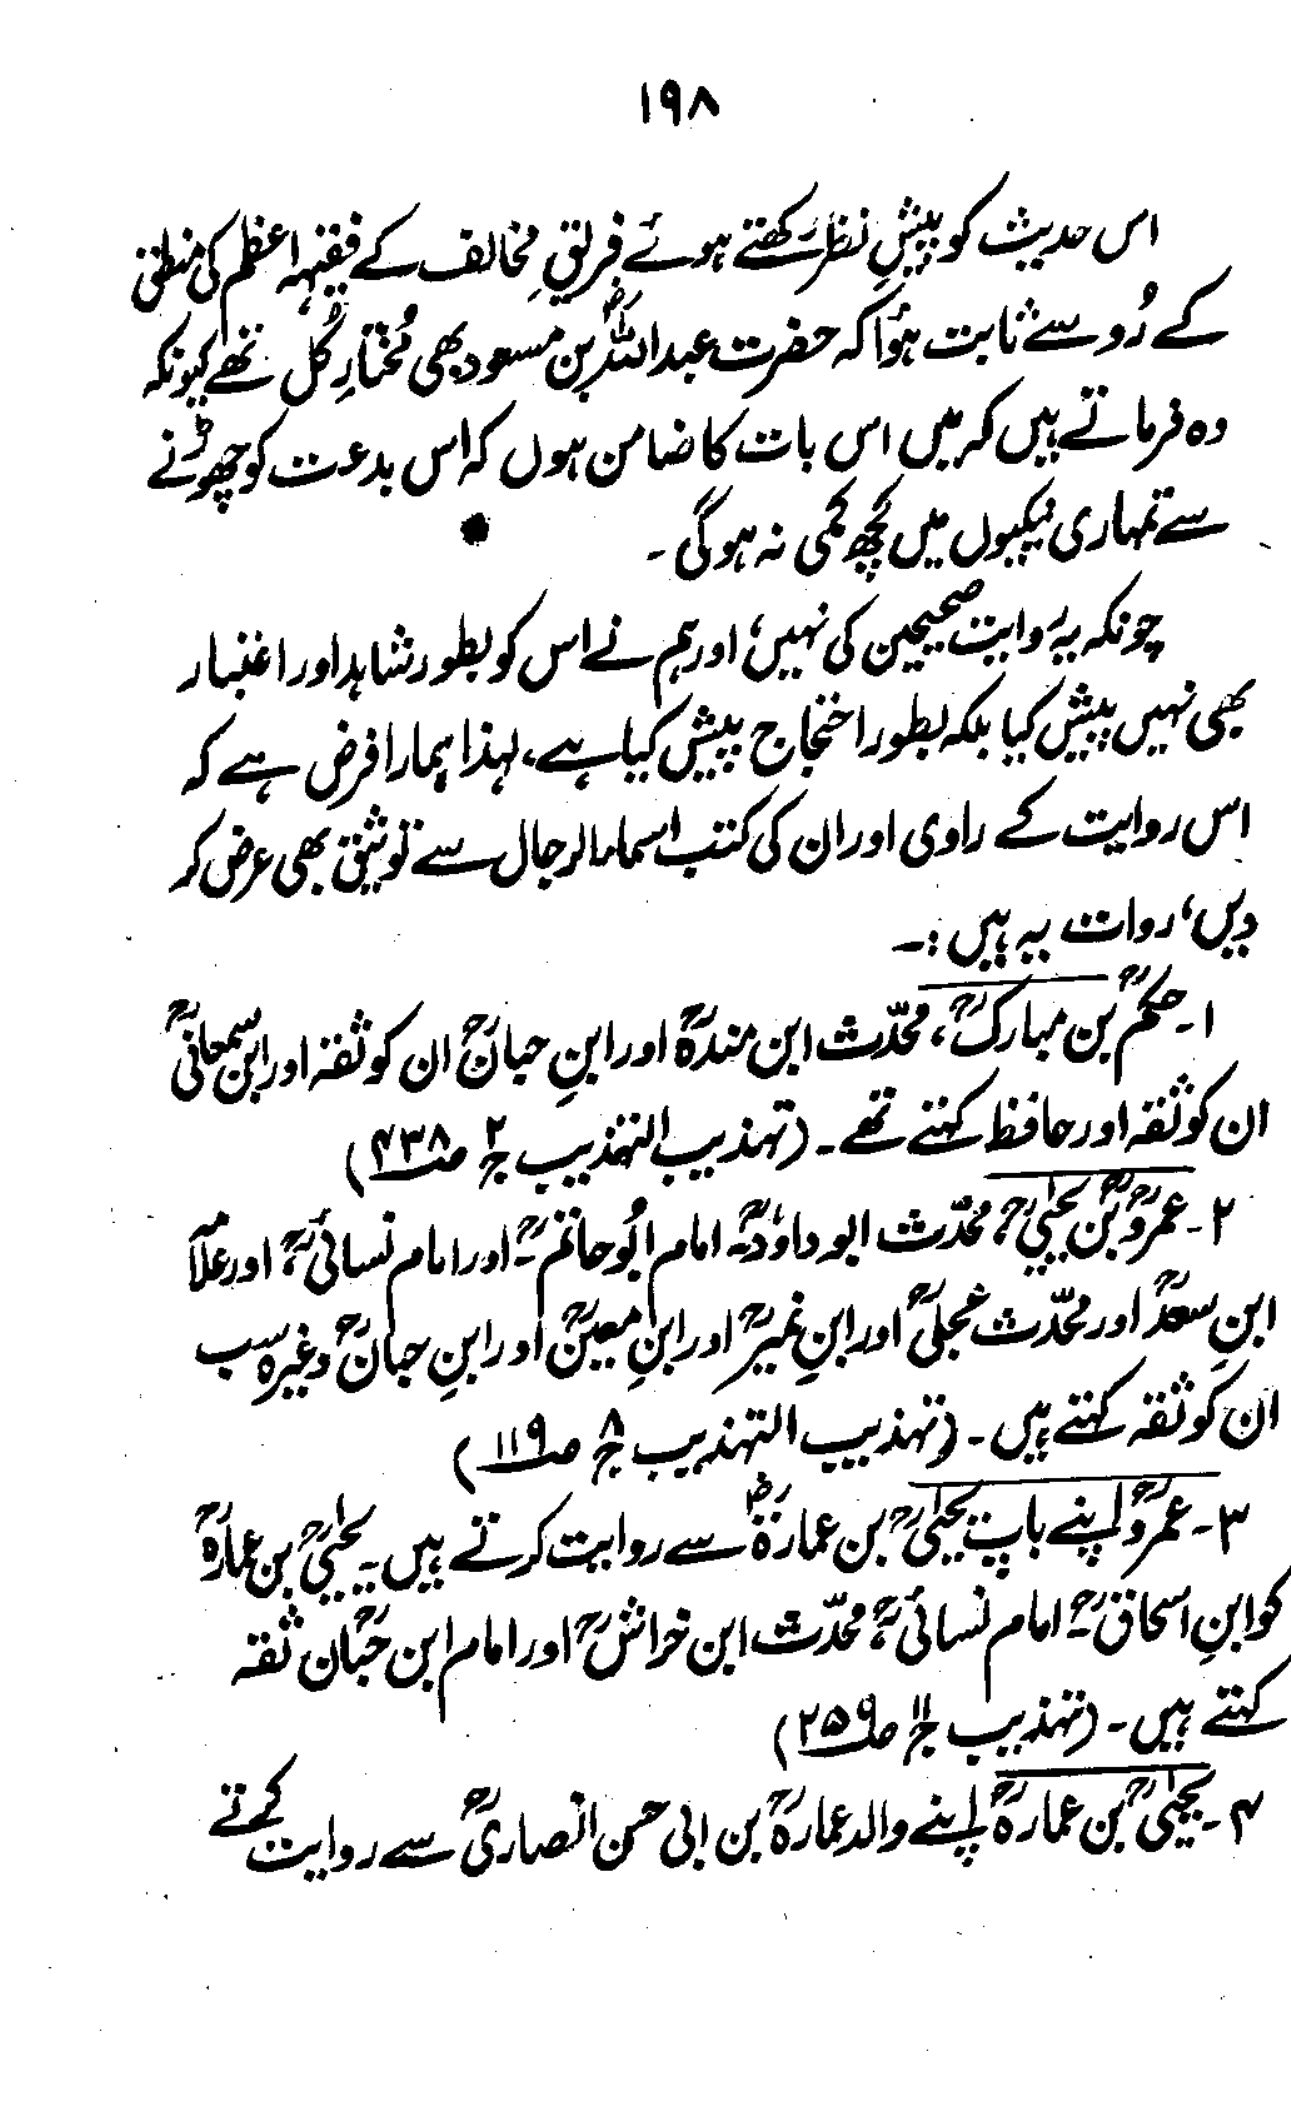 ۱۹۸
اس حدیث کو پیشِ نظر رکھتے ہوئے فریقِ مخالف کے فقیہہ اعظم کی منطق
کے رُو سے ثابت ہؤا کہ حضرت عبداللہؓ بن مسعود بھی مُختارِ کُل تھے کیونکہ
وہ فرماتے ہیں کہ میں اس بات کا ضامن ہوں کہ اس بدعت کو چھوڑنے
سے تمہاری نیکیوں میں کُچھ کمی نہ ہوگی ۔
چونکہ یہ روایت صحیحین کی نہیں، اور ہم نے اس کو بطور شاہد اور اعتبار
بھی نہیں پیش کیا بلکہ بطور احتجاج پیش کیا ہے، لہذا ہمارا فرض ہے کہ
اس روایت کے راوی اور ان کی کتب اسماء الرجال سے توثیق بھی عرض کر
دیں، روات یہ ہیں :۔
۱۔ حکمؒ بن مبارکؒ، محدّث ابن مندہؒ اور ابنِ حبانؒ ان کو ثقہ اور ابن سمعانیؒ
ان کو ثقہ اور حافظ کہتے تھے ۔ (تہذیب التہذیب ج ۲ ص ۴۳۸)
۲۔ عمروؒ بن یحییٰؒ، محدّث ابو داؤدؒ۔ امام ابُو حاتمؒ۔ اور امام نسائیؒ، اور علاّمہ
ابنِ سعدؒ اور محدّث عجلیؒ اور ابنِ نمیرؒ اور ابنِ معینؒ اور ابنِ حبانؒ وغیرہ سب
ان کو ثقہ کہتے ہیں ۔ (تہذیب التہذیب ج ۸ ص ۱۱۹)
۳۔ عمروؒ اپنے باپ یحییٰؒ بن عمارۃؓ سے روایت کرتے ہیں ۔ یحییٰؒ بن عمارہؒ
کو ابنِ اسحاقؒ۔ امام نسائیؒ، محدّث ابن خراشؒ اور امام ابن حبّانؒ ثقہ
کہتے ہیں ۔ (تہذیب ج ۱۱ ص ۲۵۹)
۴۔ یحییٰؒ بن عمارہؒ اپنے والد عمارہؒ بن ابی حسن انصاریؒ سے روایت کرتے